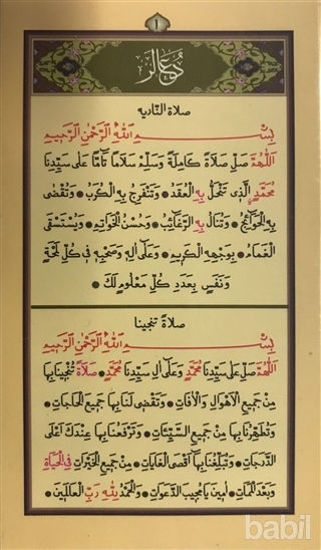 ١
دعالر
صلاة النّاديه
بِسْــــمِ اللهِ الرَّحْمٰنِ الرَّحِيمِ
اَللّٰهُمَّ صَلِّ صَلَاةً كَامِلَةً وَسَلِّمْ سَلَامًا تَامًّا عَلَى سَيِّدِنَا
مُحَمَّدٍ الَّذِى تَنْحَلُّ بِهِ الْعُقَدُ • وَتَنْفَرِجُ بِهِ الْكُرَبُ • وَتُقْضَى
بِهِ الْحَوَائِجُ • وَتُنَالُ بِهِ الرَّغَائِبُ • وَحُسْنُ الْخَوَاتِمِ • وَيُسْتَسْقَى
الْغَمَامُ • بِوَجْهِهِ الْكَرِيمِ • وَعَلَى اٰلِهِ وَصَحْبِهِ فِى كُلِّ لَمْحَةٍ
وَنَفَسٍ بِعَدَدِ كُلِّ مَعْلُومٍ لَكَ •
صلاة تنجينا
بِسْــــمِ اللهِ الرَّحْمٰنِ الرَّحِيمِ
اَللّٰهُمَّ صَلِّ عَلَى سَيِّدِنَا مُحَمَّدٍ وَعَلَى اٰلِ سَيِّدِنَا مُحَمَّدٍ • صَلَاةً تُنْجِينَا بِهَا
مِنْ جَمِيعِ الْاَهْوَالِ وَالْاٰفَاتِ • وَتَقْضِى لَنَا بِهَا جَمِيعَ الْحَاجَاتِ •
وَتُطَهِّرُنَا بِهَا مِنْ جَمِيعِ السَّيِّئَاتِ • وَتَرْفَعُنَا بِهَا عِنْدَكَ اَعْلَى
الدَّرَجَاتِ • وَتُبَلِّغُنَا بِهَا اَقْصَى الْغَايَاتِ • مِنْ جَمِيعِ الْخَيْرَاتِ فِى الْحَيَاةِ
وَبَعْدَ الْمَمَاتِ • اٰمِينَ يَا مُجِيبَ الدَّعَوَاتِ • وَالْحَمْدُ لِلّٰهِ رَبِّ الْعَالَمِينَ •
babil